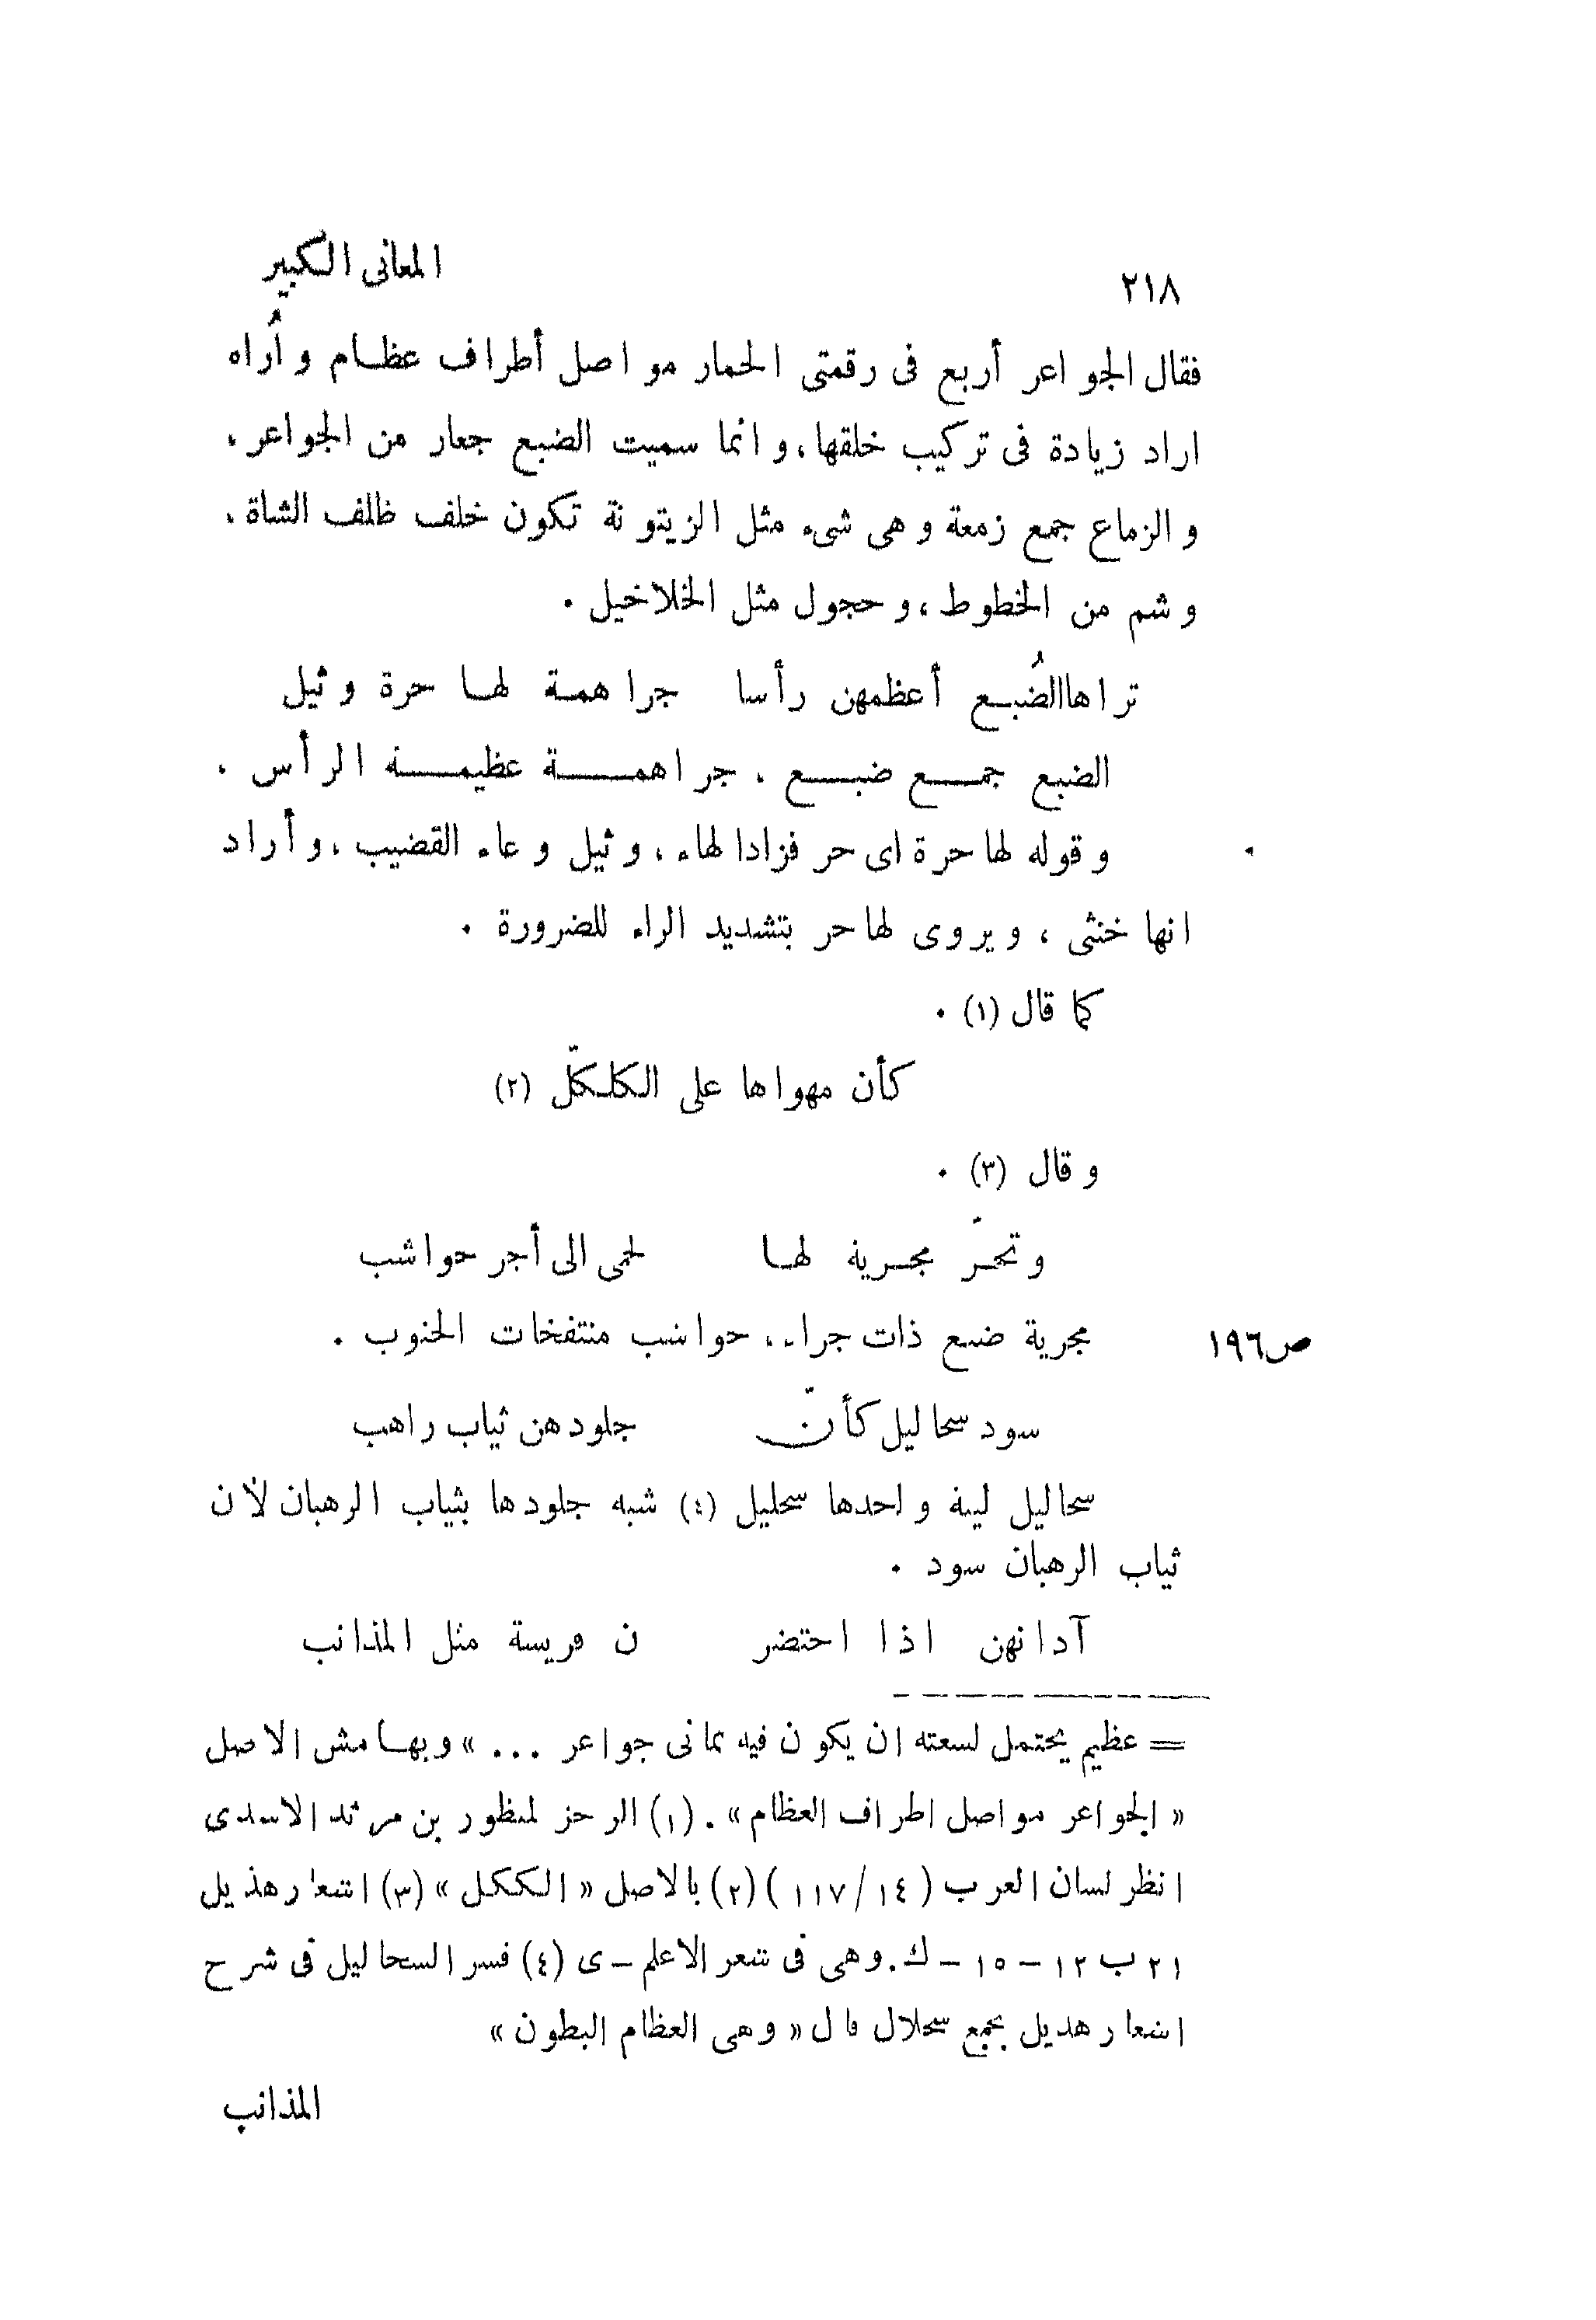 ٢١٨
المعانى الكبير
فقال الجواعر أربع فى رقمتى الحمار مواصل أطراف عظام وأُراه
اراد زيادة فى تركيب خلقها، وانما سميت الضبع جعار من الجواعر،
والزماع جمع زمعة وهى شىء مثل الزيتونة تكون خلف ظلف الشاة،
وشم من الخطوط، وحجول مثل الخلاخيل .
تراها الضُبع أعظمهن رأسا جراهمة لها حرة وثيل
الضبع جمع ضبع ، جراهمة عظيمة الرأس .
وقوله لها حرة اى حر فزاد الهاء، وثيل وعاء القضيب، وأراد
انها خنثى ، ويروى لها حر بتشديد الراء للضرورة .
كما قال (١) .
كأن مهواها على الكلكلّ (٢)
وقال (٣) .
وتجرّ مجرية لها لحمى الى أجر حواشب
مجرية ضبع ذات جراء، حواشب منتفخات الجنوب .
ص١٩٦
سود سحاليل كأنّ جلودهن ثياب راهب
سحاليل لينة واحدها سحليل (٤) شبه جلودها بثياب الرهبان لأن
ثياب الرهبان سود .
آذانهن اذا احتضر ن فريسة مثل المذانب
= عظيم يحتمل لسعته ان يكون فيه ثمانى جواعر ... » وبهامش الاصل
« الجواعر مواصل اطراف العظام » . (١) الرجز لمنظور بن مرثد الاسدى
انظر لسان العرب ( ١٤ / ١١٧ ) (٢) بالاصل « الككل » (٣) اشعار هذيل
٢١ ب ١٢ – ١٥ – ك. وهى فى شعر الاعلم – ى (٤) فسر السحاليل فى شرح
اشعار هذيل بجمع سحلال قال « وهى العظام البطون »
المذانب